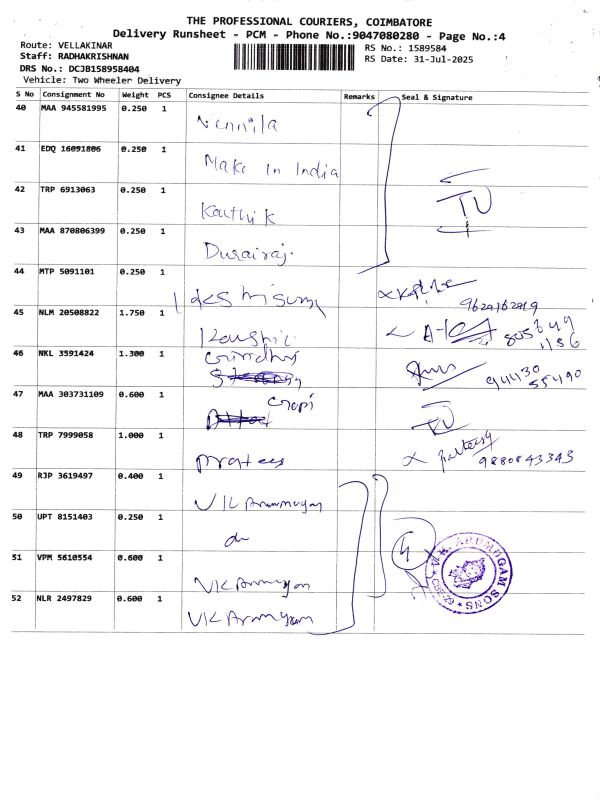 THE PROFESSIONAL COURIERS, COIMBATORE
Delivery Runsheet - PCM - Phone No.:9047080280 - Page No.:4
Route: VELLAKINAR
Staff: RADHAKRISHNAN
DRS No.: DCJB158958404
Vehicle: Two Wheeler Delivery
RS No.: 1589584
RS Date: 31-Jul-2025
S No Consignment No Weight PCS Consignee Details Remarks Seal & Signature
40 MAA 945581995 0.250 1 Vennila
41 EDQ 16091806 0.250 1 Make in India
42 TRP 6913063 0.250 1 Kauthik
43 MAA 870806399 0.250 1 Duraira
44 MTP 5091101 0.250 1
45 NLM 20508822 1.750 1
46 NKL 3591424 1.300 1
94430
55490
47 MAA 303731109 0.600 1 Gopi
48 TRP 7999058 1.000 1 Pratees
9880843343
49 RJP 3619497 0.400 1 VK Arumugam
50 UPT 8151403 0.250 1 do
51 VPM 5610554 0.600 1 VK Arumugam
52 NLR 2497829 0.600 1 VK Arumugam
V.K. ARUMUGAM SONS